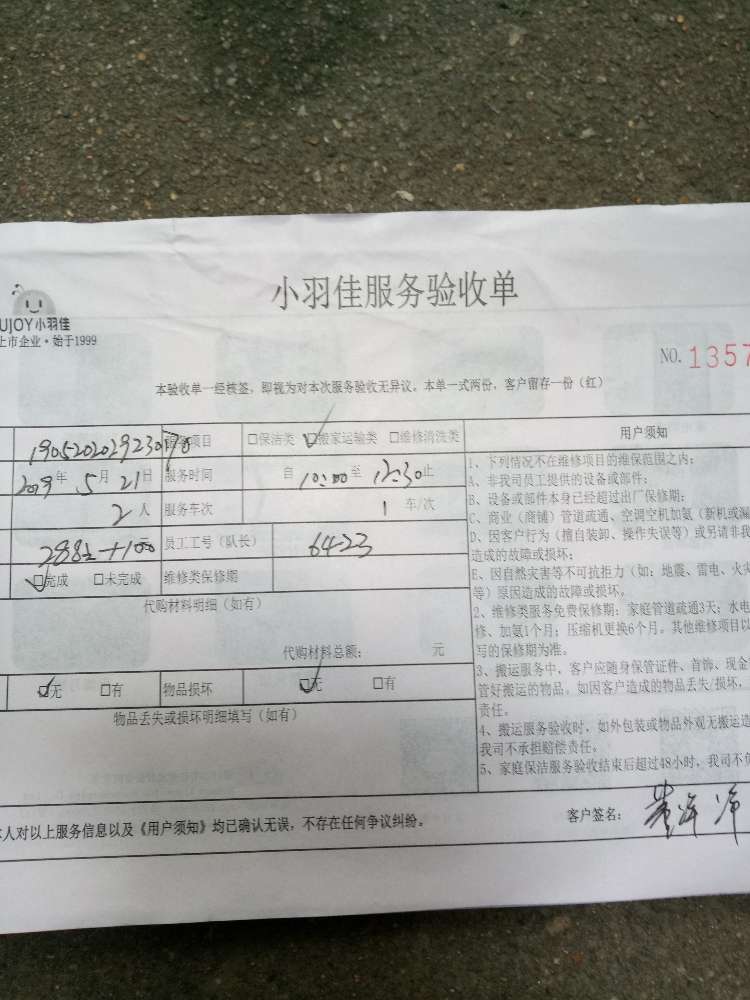 小羽佳服务验收单
UJOY小羽佳
上市企业·始于1999
NO. 1357
本验收单一经核签，即视为对本次服务验收无异议。本单一式两份，客户留存一份（红）
项目 □保洁类 □搬家运输类 □维修清洗类 用户须知
2019年 5月 21日 服务时间 自 10:00 至 12:30 止
2人 服务车次 1 车/次
288元+100 员工工号（队长） 6423
□完成 □未完成 维修类保修期
代购材料明细（如有）
代购材料总额： 元
□无 □有 物品损坏 □无 □有
物品丢失或损坏明细填写（如有）
1、下列情况不在维修项目的维保范围之内：
A、非我司员工提供的设备或部件；
B、设备或部件本身已经超过出厂保修期；
C、商业（商铺）管道疏通、空调空机加氨（新机或漏
D、因客户行为（擅自装卸、操作失误等）或另请非我
造成的故障或损坏；
E、因自然灾害等不可抗拒力（如：地震、雷电、火灾
等）原因造成的故障或损坏。
2、维修类服务免费保修期：家庭管道疏通3天；水电
修、加氨1个月；压缩机更换6个月。其他维修项目以
写的保修期为准。
3、搬运服务中，客户应随身保管证件、首饰、现金
管好搬运的物品。如因客户造成的物品丢失/损坏，
责任。
4、搬运服务验收时，如外包装或物品外观无搬运造
我司不承担赔偿责任。
5、家庭保洁服务验收结束后超过48小时，我司不
本人对以上服务信息以及《用户须知》均已确认无误，不存在任何争议纠纷。
客户签名：